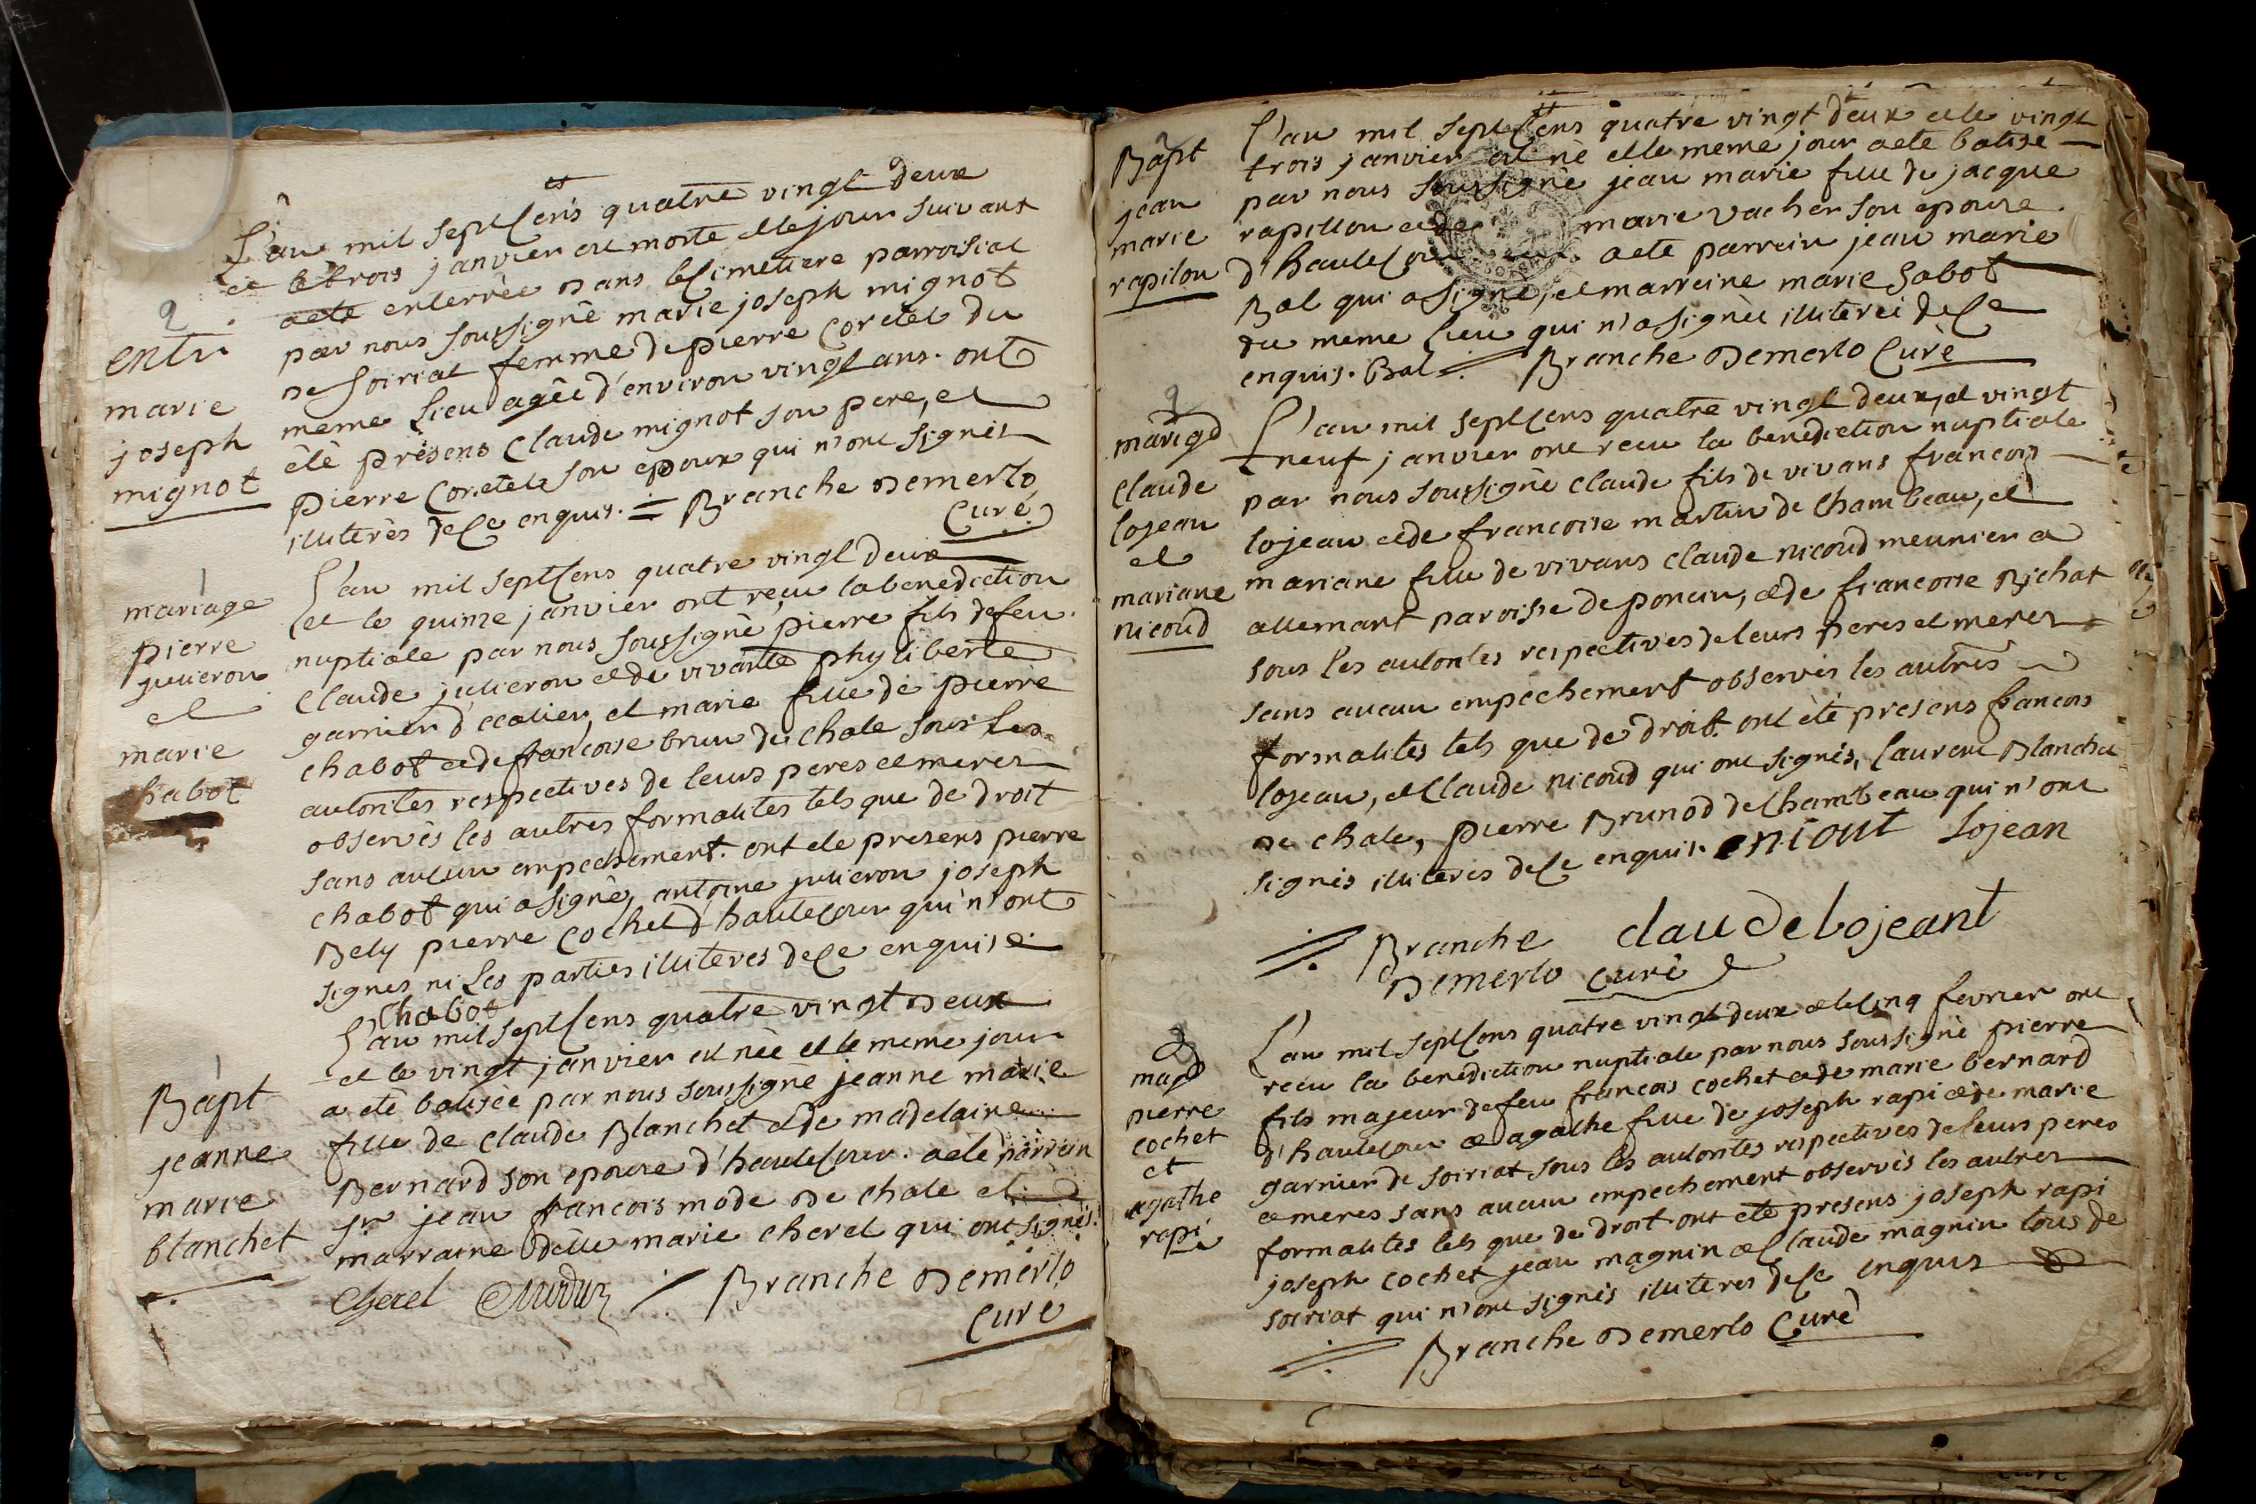 2
entr
marie
joseph
mignot
L'an mil sept cens quatre vingt deux
et le trois janvier est morte et le jour suivant
a eté enterrée dans le cimetiere parroissial
par nous soussigné marie joseph mignot
de soiriat femme de pierre coretet du
meme lieu agée d'environ vingt ans. ont
été présens claude mignot son pere, et
pierre coretet son epoux qui n'ont signés
illiterés de ce enquis. Branche Demerlo
Curé
1
mariage
pierre
julieron
et
marie
chabot
L'an mil sept cens quatre vingt deux
et le quinze janvier ont reçu la benediction
nuptiale par nous soussigné, pierre fils de feu
claude julieron et de vivante phyliberte
garnier d'ecolier, et marie fille de pierre
chabot et de françoise brun de chale sous les
autorités respectives de leurs peres et meres
observés les autres formalités tels que de droit
sans aucun empechement. ont ete presens pierre
chabot qui a signé, antoine julieron joseph
Bely pierre cochet d'hautecour qui n'ont
signés ni les parties illiteres de ce enquise
Chabot
1
Bapt
jeanne
marie
blanchet
L'an mil sept cens quatre vingt deux
et le vingt janvier est née et le meme jour
a eté batisée par nous soussigné jeanne marie
fille de claude Blanchet et de madelaine
Bernard son epouse d'hautecour. a ete parrein
sr jean francois mode de chale et
marraine delle marie cherel qui ont signés.
Cherel Branche Demerlo
Curé
Bapt
jean
marie
rapilon
L'an mil sept cens quatre vingt deux et le vingt
trois janvier est né et le meme jour a eté batisé
par nous soussigné jean marie fille de jacque
rapillon et de marie vacher son epouse
d'hautecour a ete parrein jean marie
Bal qui a signé, et marreine marie Sabot
du meme lieu qui n'a signée illiterée de ce
enquis. Bal Branche Demerlo Curé
2
mariage
claude
lojeau
et
mariane
nicoud
L'an mil sept cens quatre vingt deux, et vingt
neuf janvier ont recu la benediction nuptiale
par nous soussigné claude fils de vivans francois
lojeau et de francoise martin de Chambeau, et
mariane fille de vivans claude nicoud meunier a
allemant paroisse de poncin, et de francoise Bichat
sous les autorités respectives de leurs peres et meres
sans aucun empechement observés les autres
formalités tels que de droit. ont été presens francois
lojeau, et claude nicoud qui ont signés, laurent Blanchet
de chale, pierre Brunod de Chambeau qui n'ont
signés illiterés de ce enquis. lojean
Branche claude lojeant
Demerlo curé
pierre
cochet
et
agathe
rapi
L'an mil sept cens quatre vingt deux et le cinq fevrier ont
recu la benediction nuptiale par nous soussigné pierre
fils majeur de feu francois cochet et de marie bernard
d'hautecour et agathe fille de joseph rapi et de marie
garnier de soiriat sous les autorités respectives de leurs peres
et meres sans aucun empechement observés les autres
formalités tels que de droit ont eté presens joseph rapi
joseph cochet jean magnin et claude magnin tous de
soiriat qui n'ont signés illiteres de ce enquis
Branche Demerlo Curé